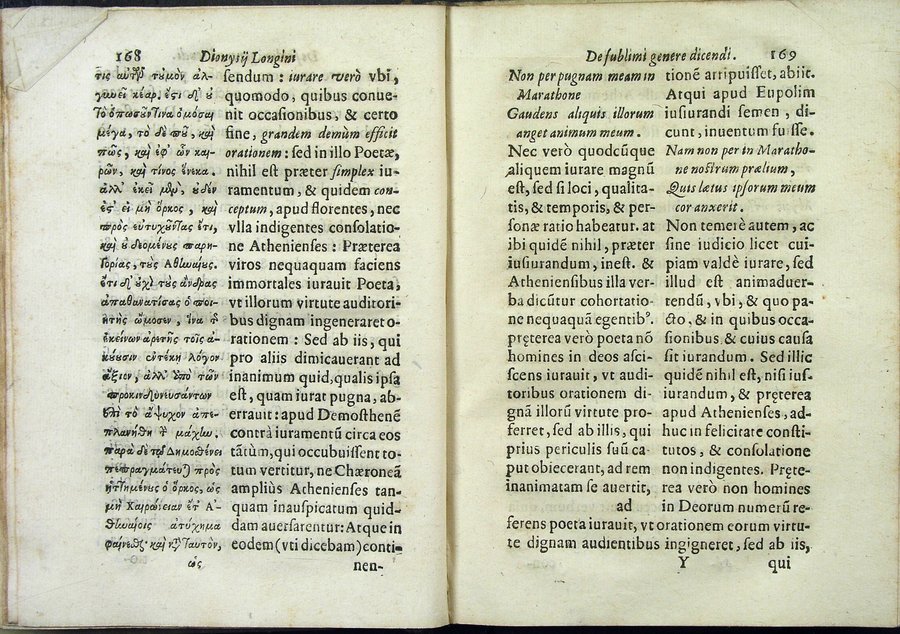 168
Dionysij Longini
τις αὐτῶν τοὐμὸν ἀλ-
γυνεῖ κέαρ. ἔςι δ' οὐ
τὸ ὁπωσοῦν τινα ὀμόσαι
μέγα, τὸ δὲ ποῦ, καὶ
πῶς, καὶ ἐφ' ὧν και-
ρῶν, καὶ τίνος ἕνεκα.
ἀλλ' ἐκεῖ μὲν, οὐδέν
ἐς' εἰ μὴ ὅρκος, καὶ
πρὸς εὐτυχοῦντας ἔτι,
καὶ οὐ δεομένους παρη-
γορίας, τοὺς Ἀθηναίους.
ἔτι δ' οὐχὶ τοὺς ἄνδρας
ἀπαθανατίσας ὁ ποι-
ητὴς ὤμοσεν, ἵνα τῆς
ἐκείνων ἀρετῆς τοῖς ἀ-
κούουσιν ἐντέκῃ λόγον
ἄξιον, ἀλλ' ἀπὸ τῶν
προκινδυνευσάντων
ἐπὶ τὸ ἄψυχον ἀπε-
πλανήθη τὴν μάχην.
παρὰ δὲ τῷ Δημοσθένει
πεπραγμάτευται πρὸς
ἡττημένους ὁ ὅρκος, ὡς
μὴ Χαιρώνειαν ἔτ' Ἀ-
θηναίοις ἀτύχημα
φαίνεσθαι· καὶ ταὐτὸν,
ὡς
ſendum : iurare verò vbi,
quomodo, quibus conue-
nit occaſionibus, & certo
fine, grandem demùm efficit
orationem : ſed in illo Poetæ,
nihil eſt præter ſimplex iu-
ramentum, & quidem con-
ceptum, apud florentes, nec
vlla indigentes conſolatio-
ne Athenienſes : Præterea
viros nequaquam faciens
immortales iurauit Poeta,
vt illorum virtute auditori-
bus dignam ingeneraret o-
rationem : Sed ab iis, qui
pro aliis dimicauerant ad
inanimum quid, qualis ipſa
eſt, quam iurat pugna, ab-
errauit : apud Demoſthenē
contrà iuramentū circa eos
tātùm, qui occubuiſſent to-
tum vertitur, ne Chæroneā
ampliùs Athenienſes tan-
quam inauſpicatum quid-
dam auerſarentur: Atque in
eodem (vti dicebam) conti-
nen-
De ſublimi genere dicendi.
169
Non per pugnam meam in
Marathone
Gaudens aliquis illorum
anget animum meum.
Nec verò quodcūque
aliquem iurare magnū
eſt, ſed ſi loci, qualita-
tis, & temporis, & per-
ſonæ ratio habeatur. at
ibi quidē nihil, præter
iuſiurandum, ineſt. &
Athenienſibus illa ver-
ba dicūtur cohortatio-
ne nequaquā egentibꝰ.
pręterea verò poeta nō
homines in deos aſci-
ſcens iurauit, vt audi-
toribus orationem di-
gnā illorū virtute pro-
ferret, ſed ab illis, qui
prius periculis ſuū ca-
put obiecerant, ad rem
inanimatam ſe auertit,
ad
tionē arripuiſſet, abiit.
Atqui apud Eupolim
iuſiurandi ſemen, di-
cunt, inuentum fuiſſe.
Nam non per in Maratho-
ne noſtrum prælium,
Quis lætus ipſorum meum
cor anxerit.
Non temerè autem, ac
ſine iudicio licet cui-
piam valdè iurare, ſed
illud eſt animaduer-
tendū, vbi, & quo pa-
cto, & in quibus occa-
ſionibus & cuius cauſa
ſit iurandum. Sed illic
quidē nihil eſt, niſi iuſ-
iurandum, & pręterea
apud Athenienſes, ad-
huc in felicitate conſti-
tutos, & conſolatione
non indigentes. Pręte-
rea verò non homines
in Deorum numerū re-
ferens poeta iurauit, vt orationem eorum virtu-
te dignam audientibus ingigneret, ſed ab iis,
Y
qui